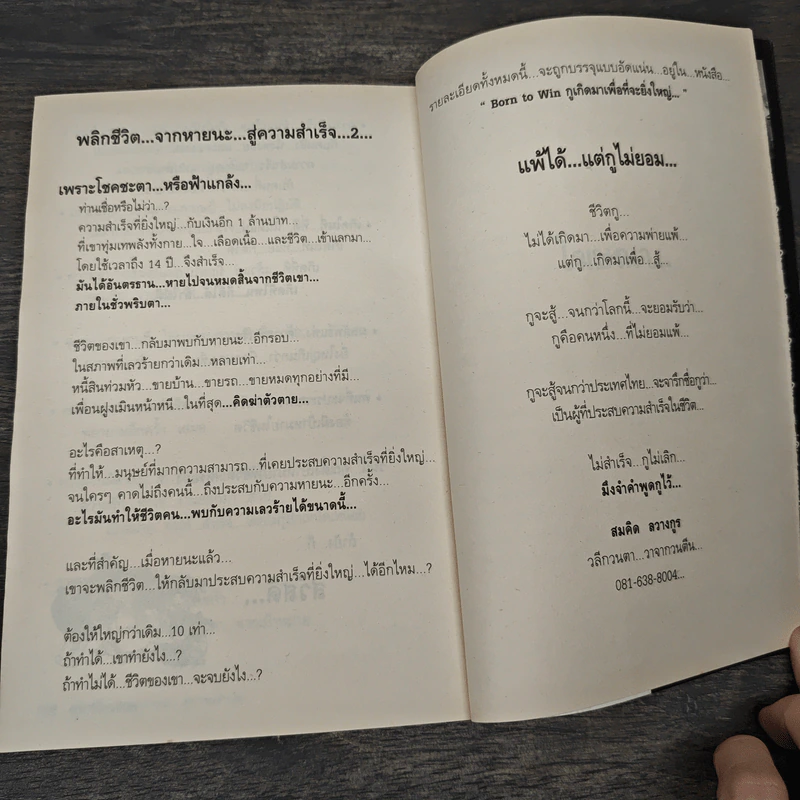 พลิกชีวิต...จากหายนะ...สู่ความสำเร็จ...2...
เพราะโชคชะตา...หรือฟ้าแกล้ง...
ท่านเชื่อหรือไม่ว่า...?
ความสำเร็จที่ยิ่งใหญ่...กับเงินอีก 1 ล้านบาท...
ที่เขาทุ่มเทพลังทั้งกาย...ใจ...เลือดเนื้อ...และชีวิต...เข้าแลกมา...
โดยใช้เวลาถึง 14 ปี...จึงสำเร็จ...
มันได้อันตรธาน...หายไปจนหมดสิ้นจากชีวิตเขา...
ภายในชั่วพริบตา...
ชีวิตของเขา...กลับมาพบกับหายนะ...อีกรอบ...
ในสภาพที่เลวร้ายกว่าเดิม...หลายเท่า...
หนี้สินท่วมหัว...ขายบ้าน...ขายรถ...ขายหมดทุกอย่างที่มี...
เพื่อนฝูงเมินหน้าหนี...ในที่สุด...คิดฆ่าตัวตาย...
อะไรคือสาเหตุ...?
ที่ทำให้...มนุษย์ที่มากความสามารถ...ที่เคยประสบความสำเร็จที่ยิ่งใหญ่...
จนใครๆ คาดไม่ถึงคนนี้...ถึงประสบกับความหายนะ...อีกครั้ง...
อะไรมันทำให้ชีวิตคน...พบกับความเลวร้ายได้ขนาดนี้...
และที่สำคัญ...เมื่อหายนะแล้ว...
เขาจะพลิกชีวิต...ให้กลับมาประสบความสำเร็จที่ยิ่งใหญ่...ได้อีกไหม...?
ต้องให้ใหญ่กว่าเดิม...10 เท่า...
ถ้าทำได้...เขาทำยังไง...?
ถ้าทำไม่ได้...ชีวิตของเขา...จะจบยังไง...?
รายละเอียดทั้งหมดนี้...จะถูกบรรจุแบบอัดแน่น...อยู่ใน...หนังสือ...
" Born to Win กูเกิดมาเพื่อที่จะยิ่งใหญ่... "
แพ้ได้...แต่กูไม่ยอม...
ชีวิตกู...
ไม่ได้เกิดมา...เพื่อความพ่ายแพ้...
แต่กู...เกิดมาเพื่อ...สู้...
กูจะสู้...จนกว่าโลกนี้...จะยอมรับว่า...
กูคือคนหนึ่ง...ที่ไม่ยอมแพ้...
กูจะสู้จนกว่าประเทศไทย...จะจารึกชื่อกูว่า...
เป็นผู้ที่ประสบความสำเร็จในชีวิต...
ไม่สำเร็จ...กูไม่เลิก...
มึงจำคำพูดกูไว้...
สมคิด ลวางกูร
วลีกวนตา...วาจากวนตีน...
081-638-8004...